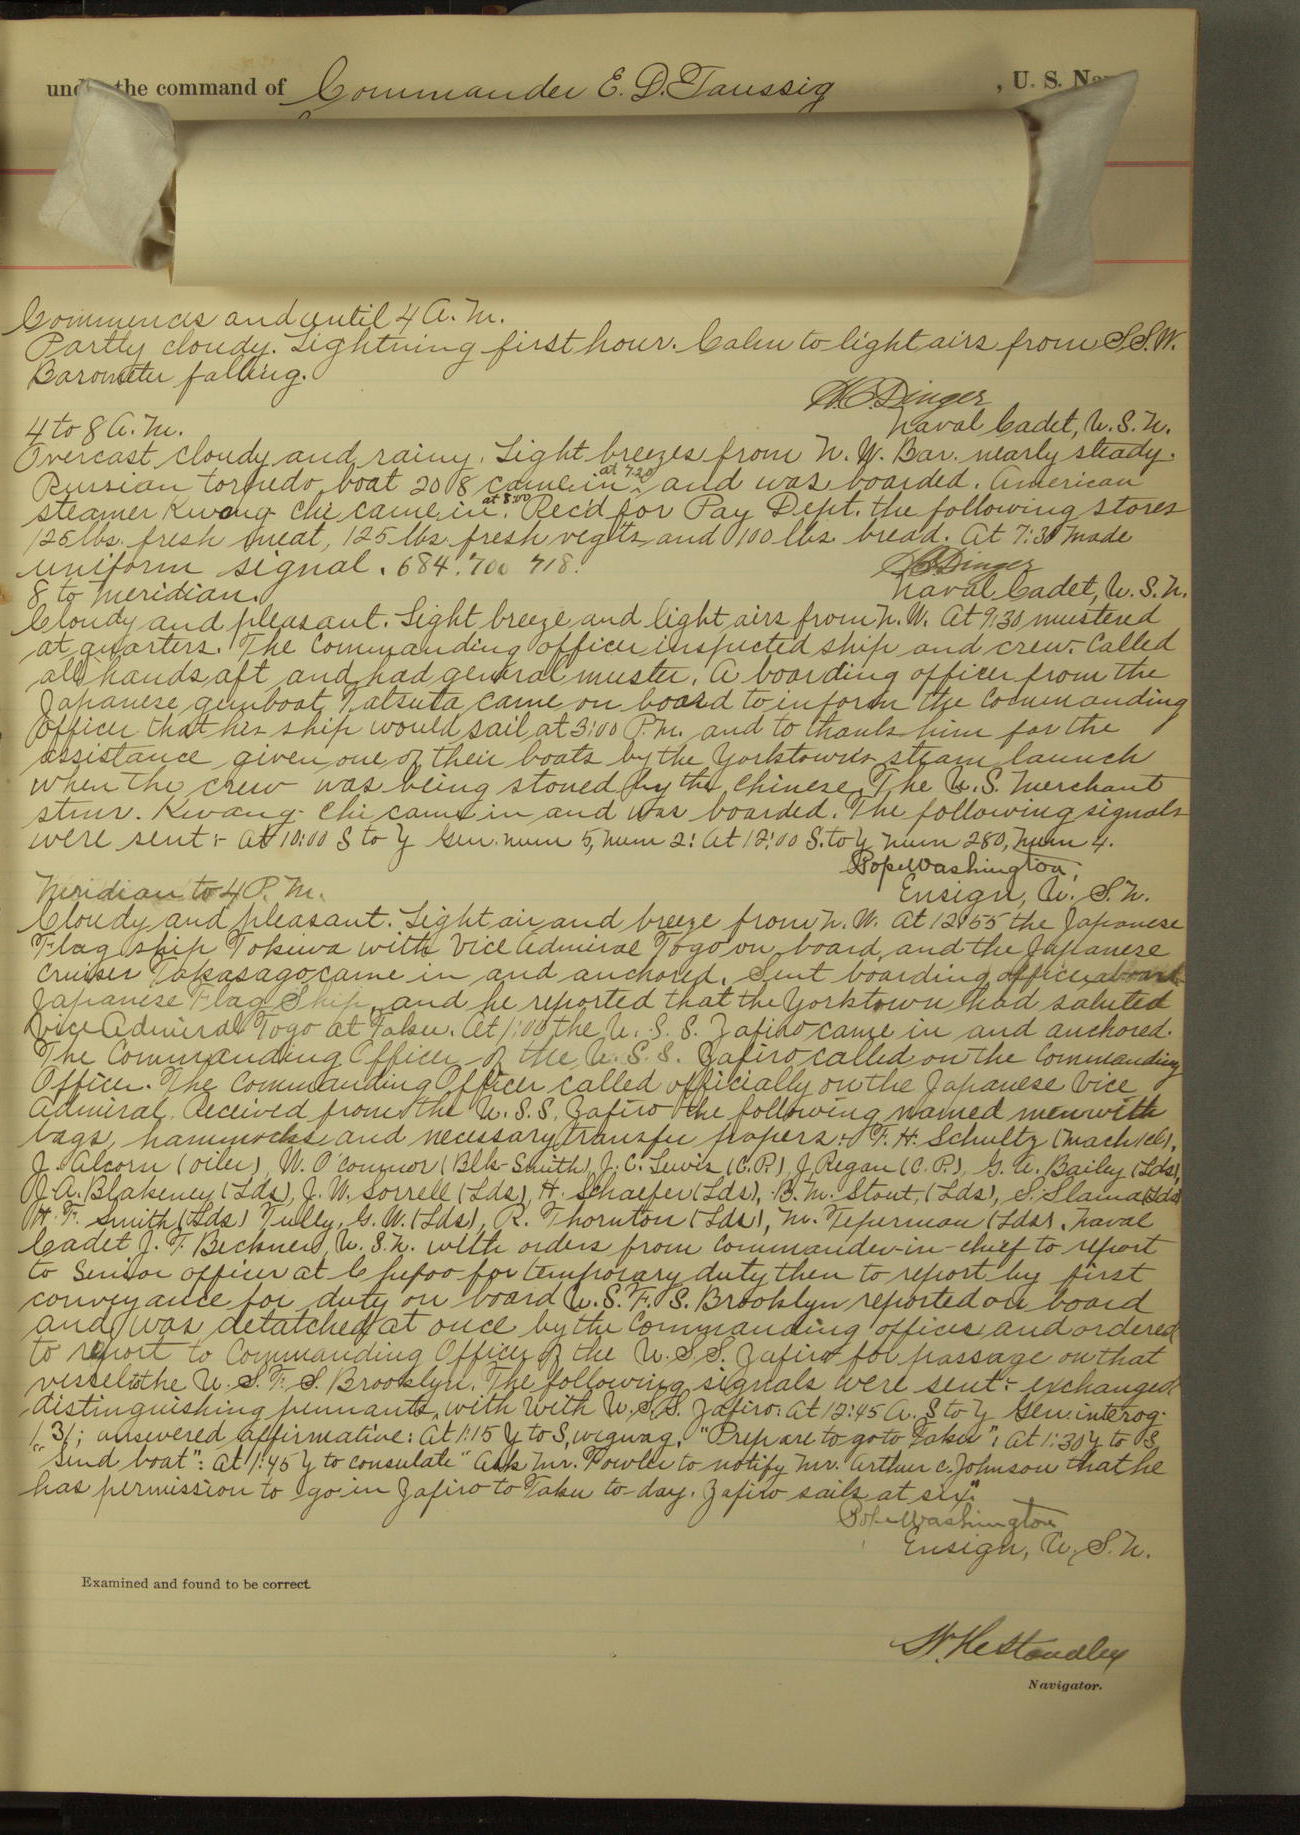 under the command of Commander E. D. Taussig, U. S. Nav
Commences and until 4 A. M.
Partly cloudy. Lightning first hour. Calm to light airs from S.S.W.
Barometer falling.
H.C. Dinger
Naval Cadet, U. S. N.
4 to 8 A. M.
Overcast cloudy and rainy. Light breezes from N. W. Bar. nearly steady.
Russian torpedo boat 208 came in at 7:20 and was boarded. American
steamer Kwang Chi came in at 8:00. Rec'd for Pay Dept. the following stores
125 lbs. fresh meat, 125 lbs. fresh veg'ts and 100 lbs. bread. At 7:30 made
uniform signal. 684. 700 718.
H.C. Dinger
Naval Cadet, U. S. N.
8 to Meridian.
Cloudy and pleasant. Light breeze and light airs from N. W. At 9:30 mustered
at quarters. The Commanding officer inspected ship and crew. Called
all hands aft and had general muster. A boarding officer from the
Japanese gunboat Tatsuta came on board to inform the Commanding
Officer that his ship would sail at 3:00 P.M. and to thank him for the
assistance given one of their boats by the Yorktown's steam launch
when the crew was being stoned by the Chinese. The U. S. Merchant
stmr. Kwang-Chi came in and was boarded. The following signals
were sent:- At 10:00 S to Y Gen. num 5, num 2: At 12:00 S. to Y num 280, num 4.
Pope Washington,
Ensign, U. S. N.
Meridian to 4 P. M.
Cloudy and pleasant. Light air and breeze from N. W. At 12:55 the Japanese
Flag ship Tokiwa with Vice Admiral Togo on board, and the Japanese
cruiser Takasago came in and anchored. Sent boarding officer aboard
Japanese Flag Ship, and he reported that the Yorktown had saluted
Vice Admiral Togo at Taku. At 1:00 the U. S. S. Zafiro came in and anchored.
The Commanding Officer of the U. S. S. Zafiro called on the Commanding
Officer. The Commanding Officer called officially on the Japanese Vice
Admiral. Received from the U. S. S. Zafiro the following named men with
bags, hammocks and necessary transfer papers:- F. H. Schultz (Mach 1cl),
J. Alcorn (oiler), W. O'Connor (Blk-Smith), J. C. Lewis (C.P.), J. Regan (C.P.), G. A. Bailey (Lds),
J. A. Blakeney (Lds), J. W. Sorrell (Lds), H. Schaefer (Lds), B. M. Stout, (Lds), S. Slama (Lds)
H. F. Smith (Lds) Tully, G. W. (Lds), R. Thornton (Lds), M. Teperman (Lds). Naval
Cadet J. T. Beckner, U. S. N. with orders from Commander-in-chief to report
to Senior officer at Chefoo for temporary duty then to report by first
conveyance for duty on board U. S. F. S. Brooklyn reported on board
and was detatched at once by the Commanding officer and ordered
to report to Commanding Officer of the U. S. S. Zafiro for passage on that
vessel to the U. S. F. S. Brooklyn. The following signals were sent:- exchanged
distinguishing pennants with with U. S. S. Zafiro: At 12:45 A. S to Y Gen. interog.
131; answered affirmative: At 1:15 Y to S, wigwag, "Prepare to go to Taku": At 1:30 Y to S
"Send boat": At 1:45 Y to consulate "Ask Mr. Fowler to notify Mr. Arthur C. Johnson that he
has permission to go in Zafiro to Taku to-day. Zafiro sails at six."
Pope Washington
Ensign, U. S. N.
Examined and found to be correct.
W. H. Standley
Navigator.